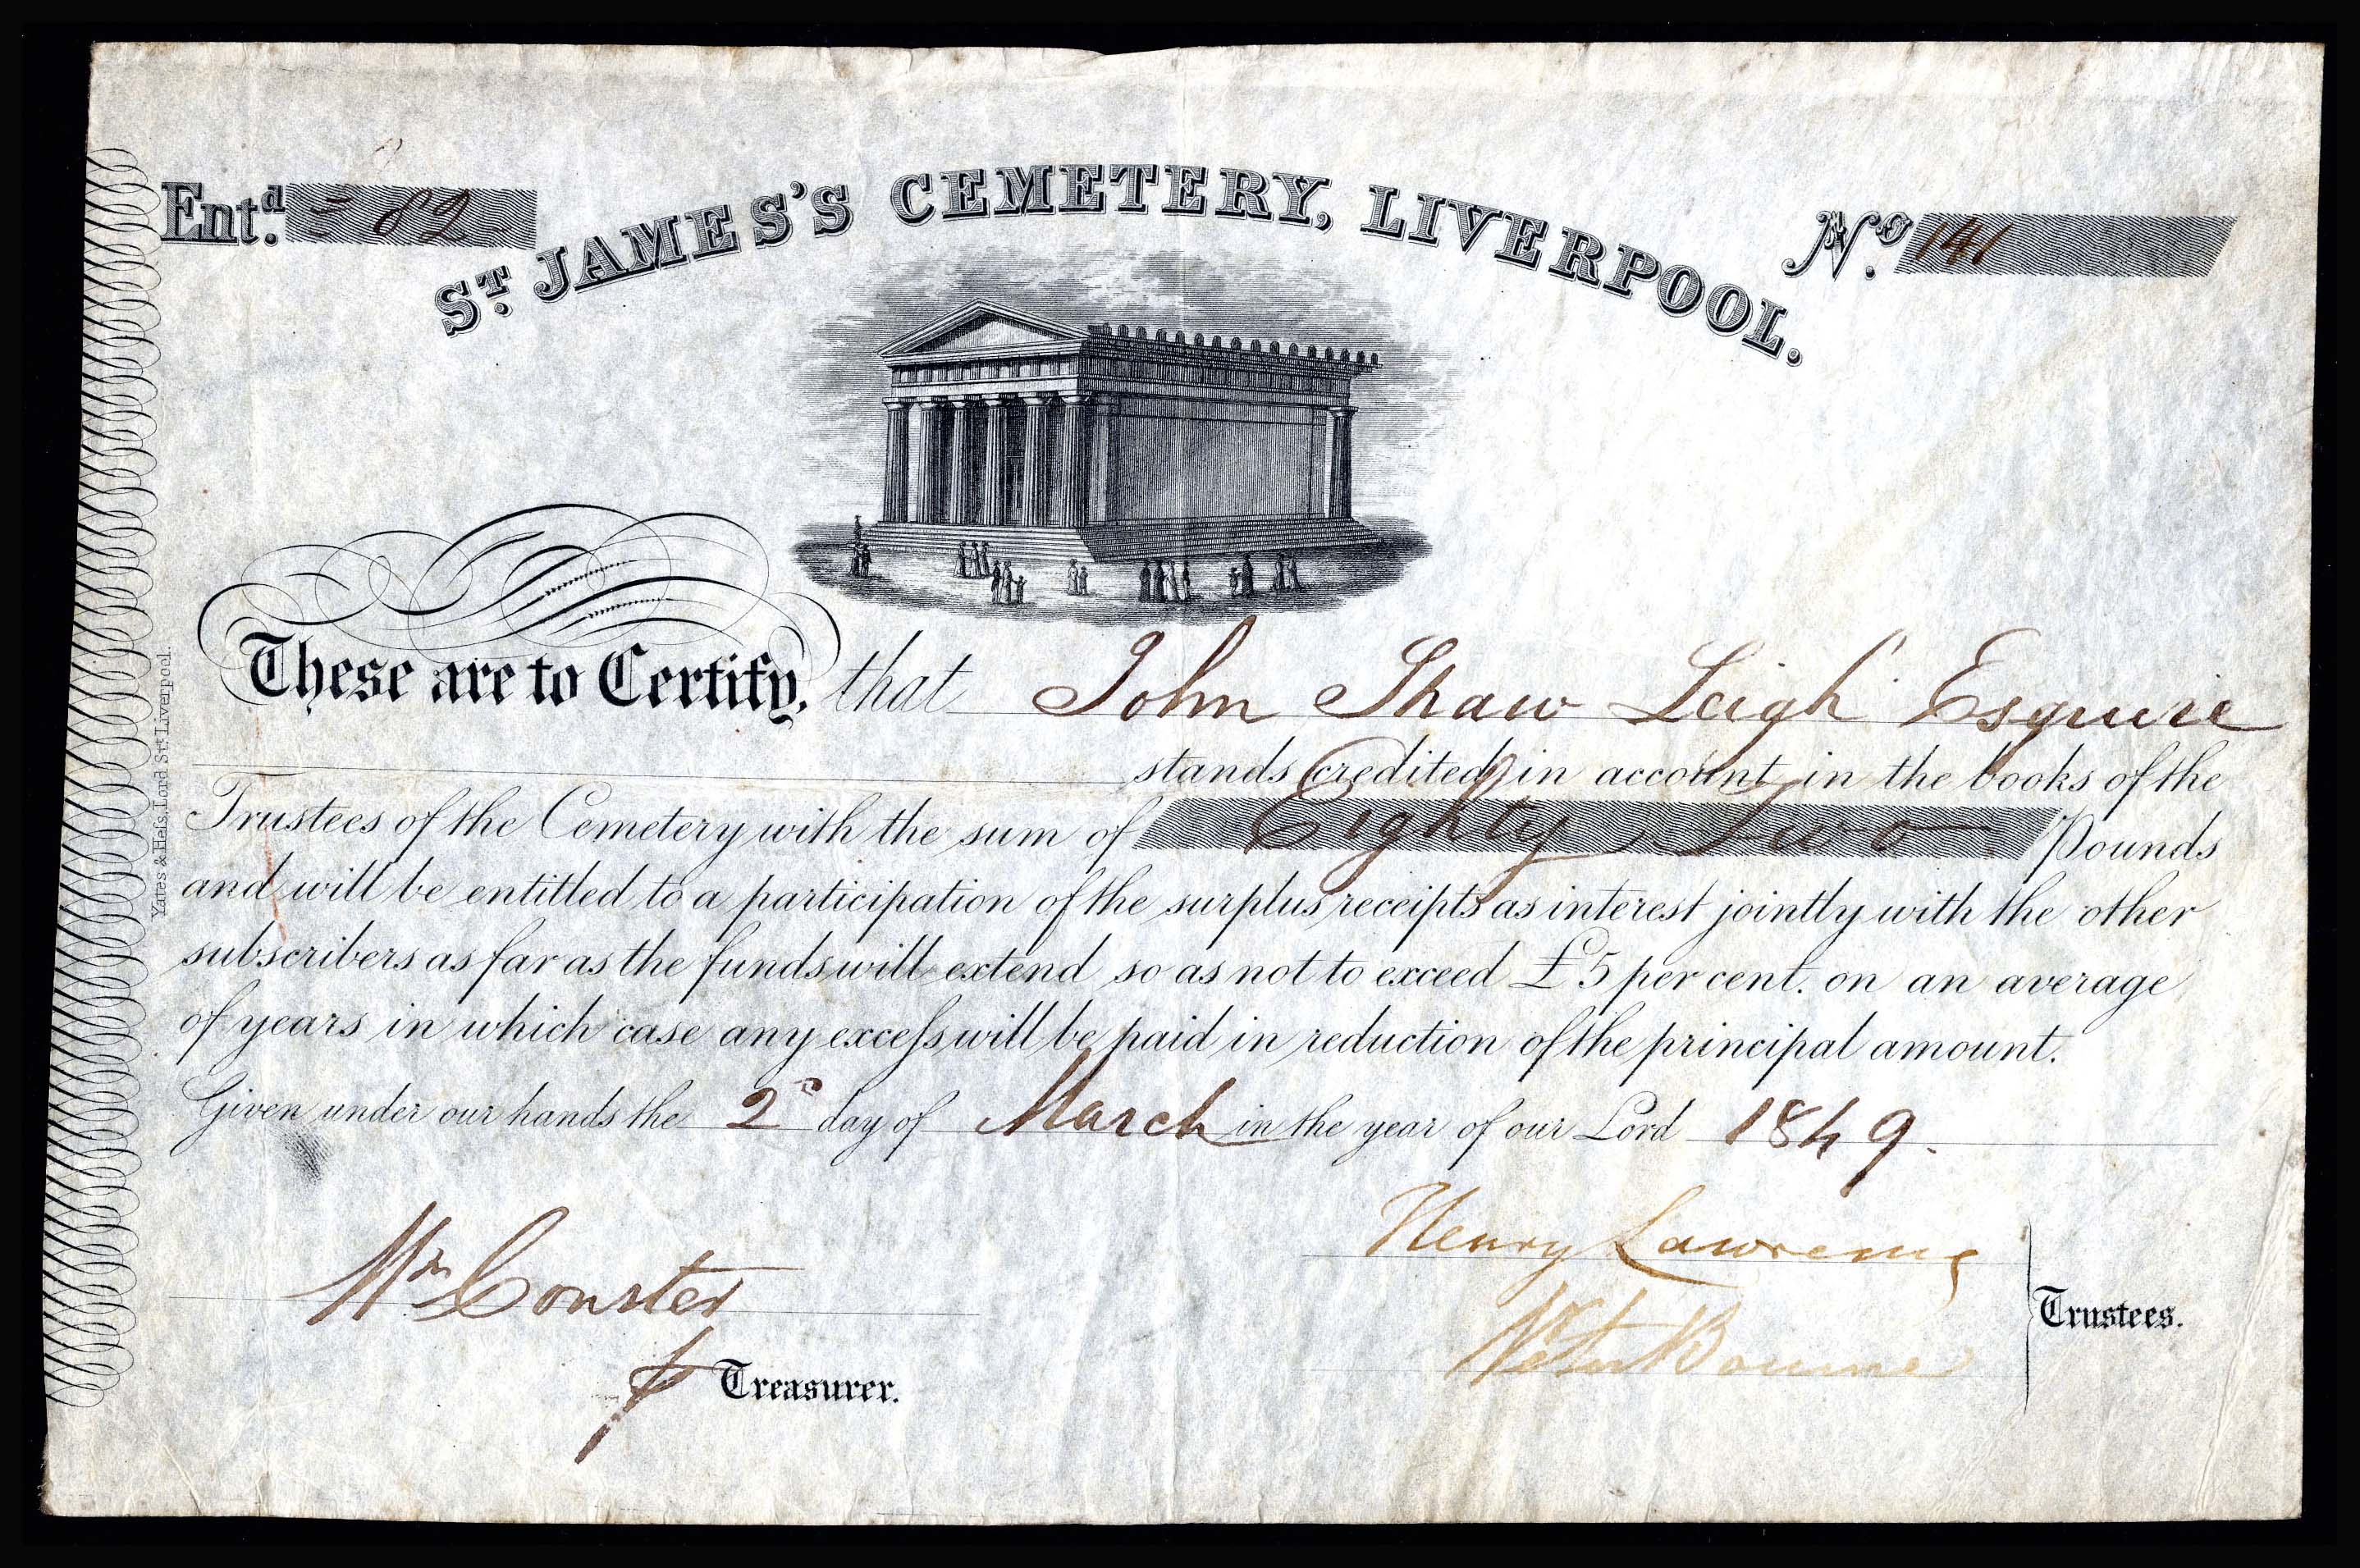 Entd. = 82 -
ST. JAMES'S CEMETERY, LIVERPOOL.
No. 141
These are to Certify, that John Shaw Leigh Esquire
stands credited in account in the books of the
Trustees of the Cemetery with the sum of Eighty Two Pounds
and will be entitled to a participation of the surplus receipts as interest jointly with the other
subscribers as far as the funds will extend so as not to exceed £5 per cent. on an average
of years in which case any excess will be paid in reduction of the principal amount.
Given under our hands the 2d day of March in the year of our Lord 1849.
Henry Lawrence
Wm
Peter Bourne
Trustees.
Treasurer.
Yates & Hess, Lord St. Liverpool.